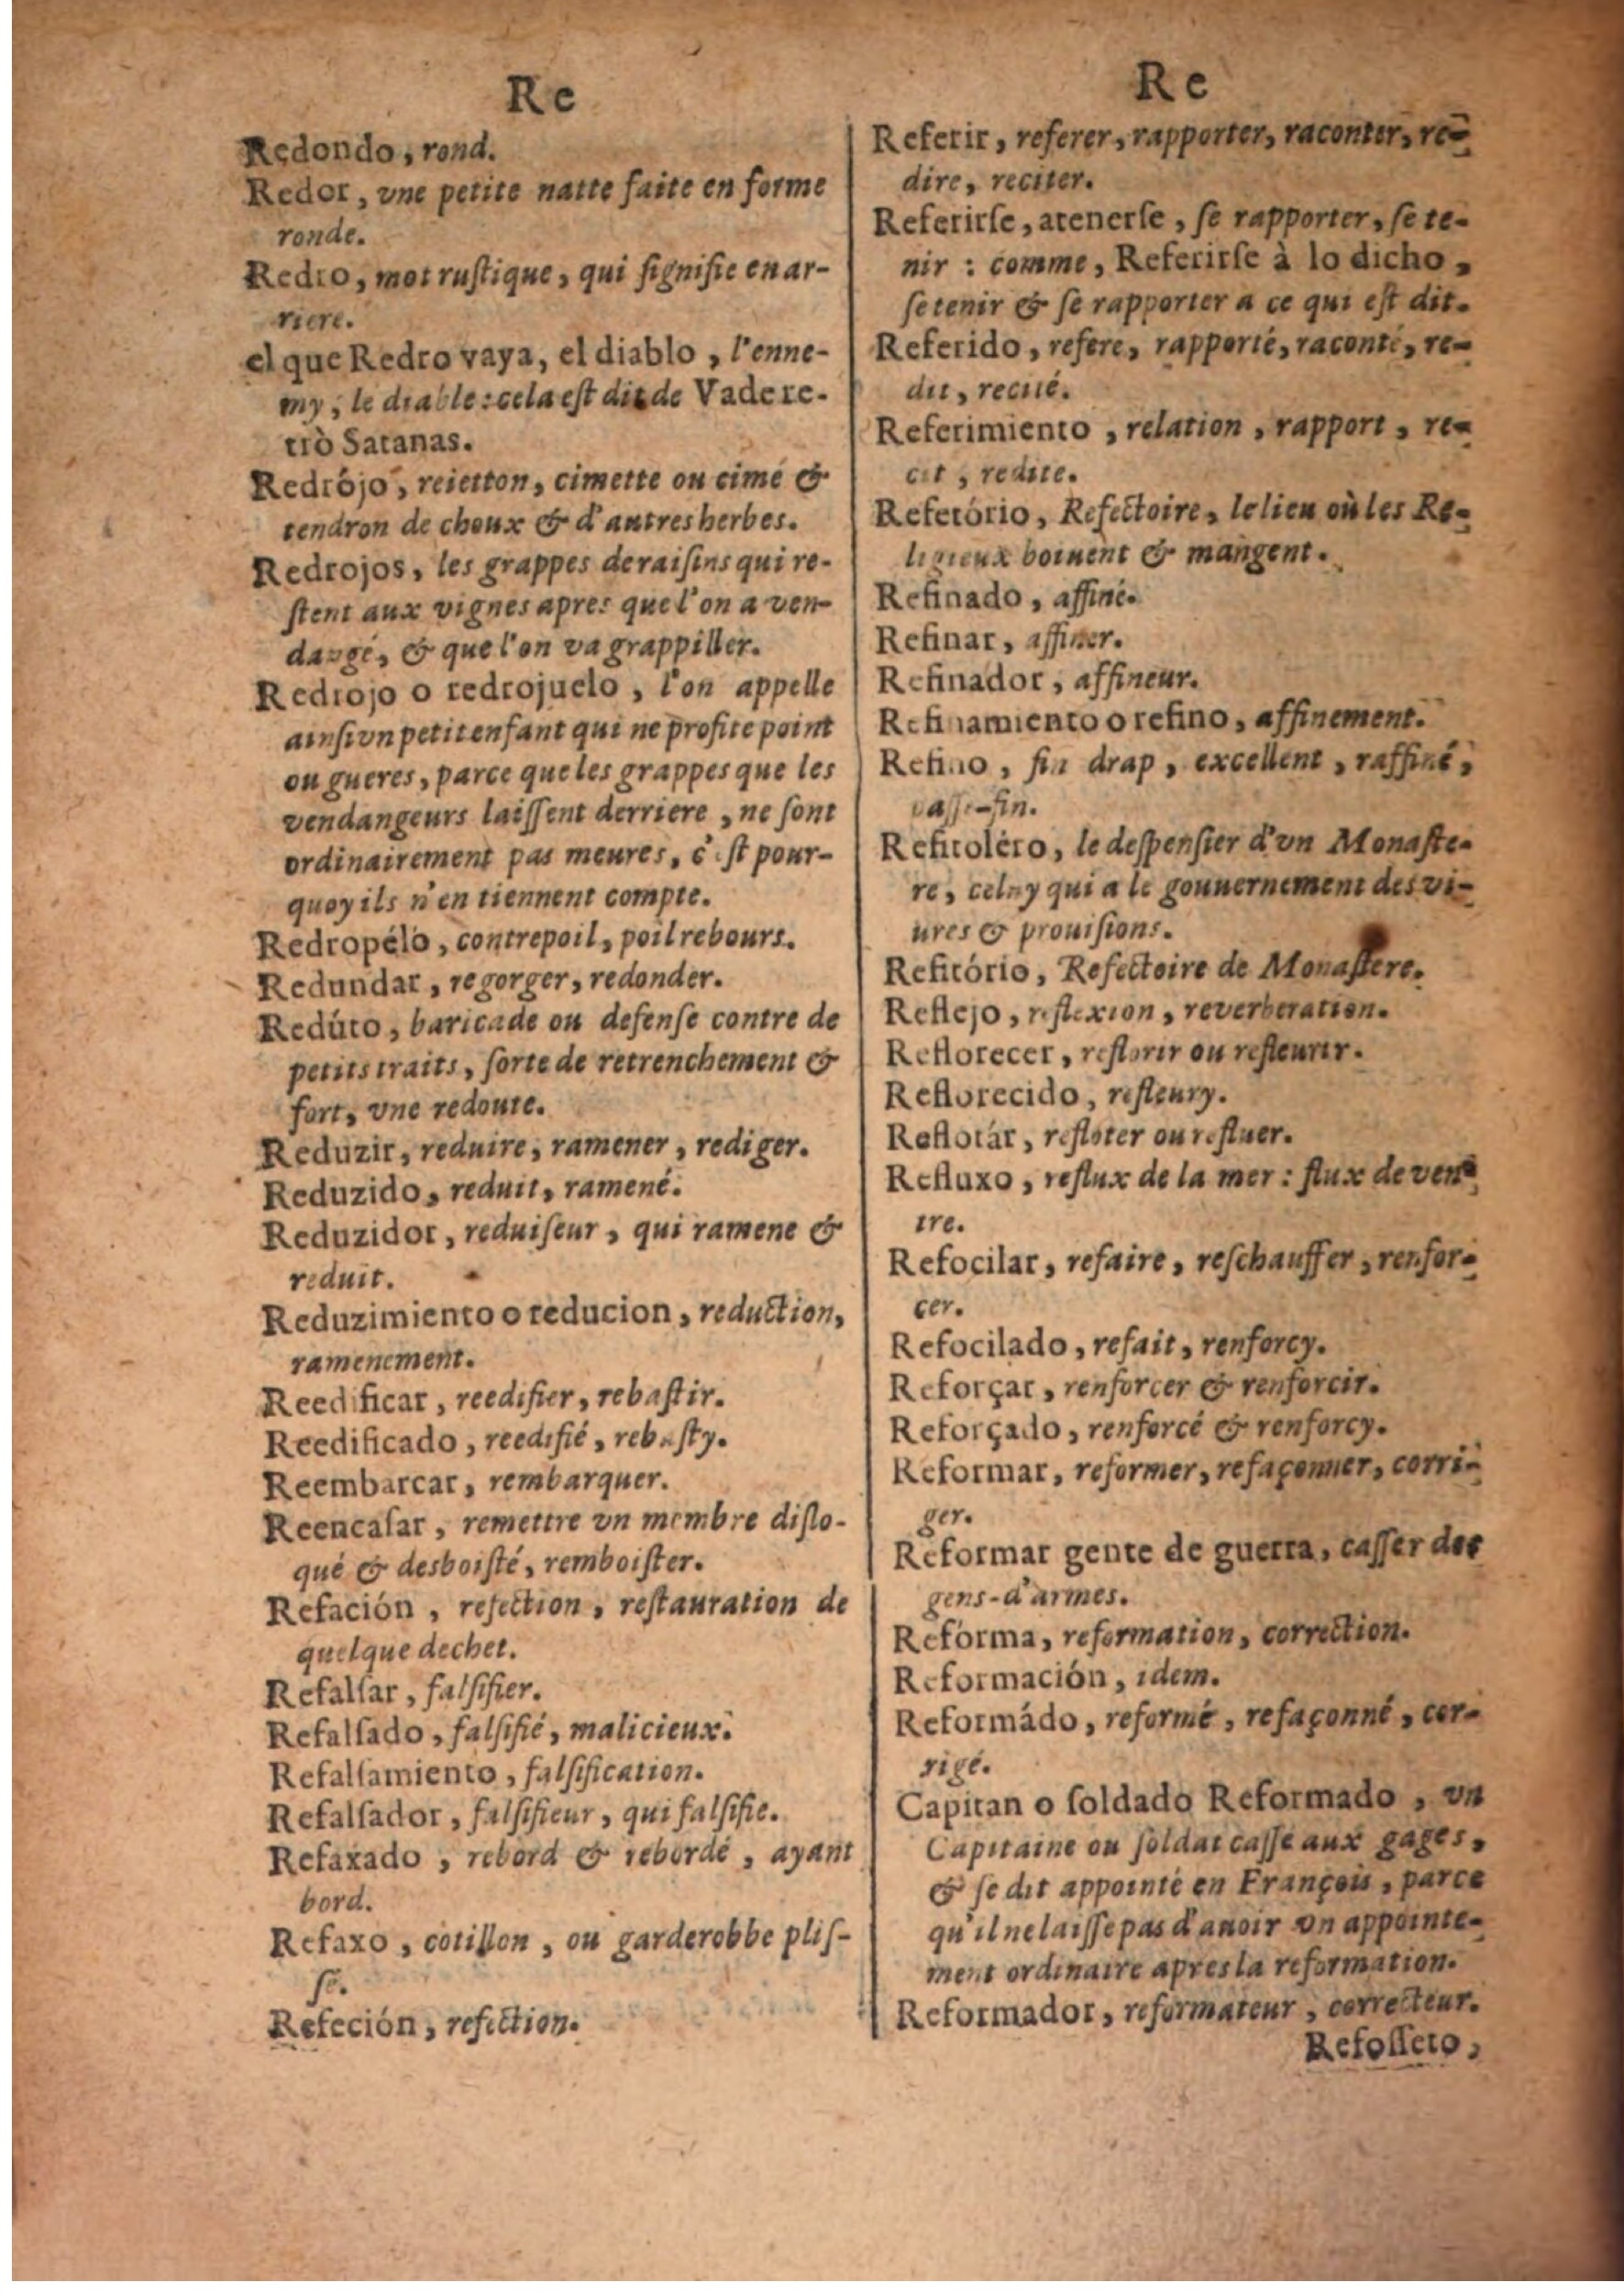 Re
Redondo, rond.
Redor, vne petite natte faite en forme
ronde.
Redro, mot ruſtique, qui ſignifie en ar-
riere.
el que Redro vaya, el diablo, l'enne-
my, le diable: cela eſt dit de Vade re-
trò Satanas.
Redrójo, reietton, cimette ou cime &
tendron de choux & d'autres herbes.
Redrojos, les grappes de raiſins qui re-
ſtent aux vignes apres que l'on a ven-
dangé, & que l'on va grappiller.
Redrojo o redrojuelo, l'on appelle
ainſi vn petit enfant qui ne profite point
ou gueres, parce que les grappes que les
vendangeurs laiſſent derriere, ne ſont
ordinairement pas meures, c'eſt pour-
quoy ils n'en tiennent compte.
Redropélo, contrepoil, poil rebours.
Redundar, regorger, redonder.
Redúto, baricade ou defenſe contre de
petits traits, ſorte de retrenchement &
fort, vne redoute.
Reduzir, reduire, ramener, rediger.
Reduzido, reduit, ramené.
Reduzidor, reduiſeur, qui ramene &
reduit.
Reduzimiento o reducion, reduction,
ramenement.
Reedificar, reedifier, rebaſtir.
Reedificado, reedifié, rebaſty.
Reembarcar, rembarquer.
Reencaſar, remettre vn membre diſlo-
qué & desboiſté, remboiſter.
Refación, refection, reſtauration de
quelque dechet.
Refalſar, falſifier.
Refalſado, falſifié, malicieux.
Refalſamiento, falſification.
Refalſador, falſifieur, qui falſifie.
Refaxado, rebord & rebordé, ayant
bord.
Refaxo, cotillon, ou garderobbe pliſ-
ſé.
Refeción, refection.
Re
Referir, referer, rapporter, raconter, re-
dire, reciter.
Referirſe, atenerſe, ſe rapporter, ſe te-
nir : comme, Referirſe à lo dicho,
ſe tenir & ſe rapporter a ce qui eſt dit.
Referido, refere, rapporté, raconté, re-
dit, recité.
Referimiento, relation, rapport, re-
cit, redite.
Refetório, Refectoire, le lieu où les Re-
ligieux boiuent & mangent.
Refinado, affiné.
Refinar, affiner.
Refinador, affineur.
Refinamiento o refino, affinement.
Refino, fin drap, excellent, raffiné,
passe-fin.
Refitoléro, le deſpenſier d'vn Monaſte-
re, celuy qui a le gouuernement des vi-
ures & prouiſions.
Refitório, Refectoire de Monaſtere.
Reflejo, reflexion, reverberation.
Reflorecer, reflorir ou refleurir.
Reflorecido, refleury.
Reflotár, refloter ou refluer.
Refluxo, reflux de la mer : flux de ven-
tre.
Refocilar, refaire, reſchauffer, renfor-
cer.
Refocilado, refait, renforcy.
Reforçar, renforcer & renforcir.
Reforçado, renforcé & renforcy.
Reformar, reformer, refaçonner, corri-
ger.
Reformar gente de guerra, caſſer des
gens-d'armes.
Refórma, reformation, correction.
Reformación, idem.
Reformádo, reformé, refaçonné, cor-
rigé.
Capitan o ſoldado Reformado, vn
Capitaine ou ſoldat caſſé aux gages,
& ſe dit appointé en François, parce
qu'il ne laiſſe pas d'auoir vn appointe-
ment ordinaire apres la reformation.
Reformador, reformateur, correcteur.
Refoſſeto,